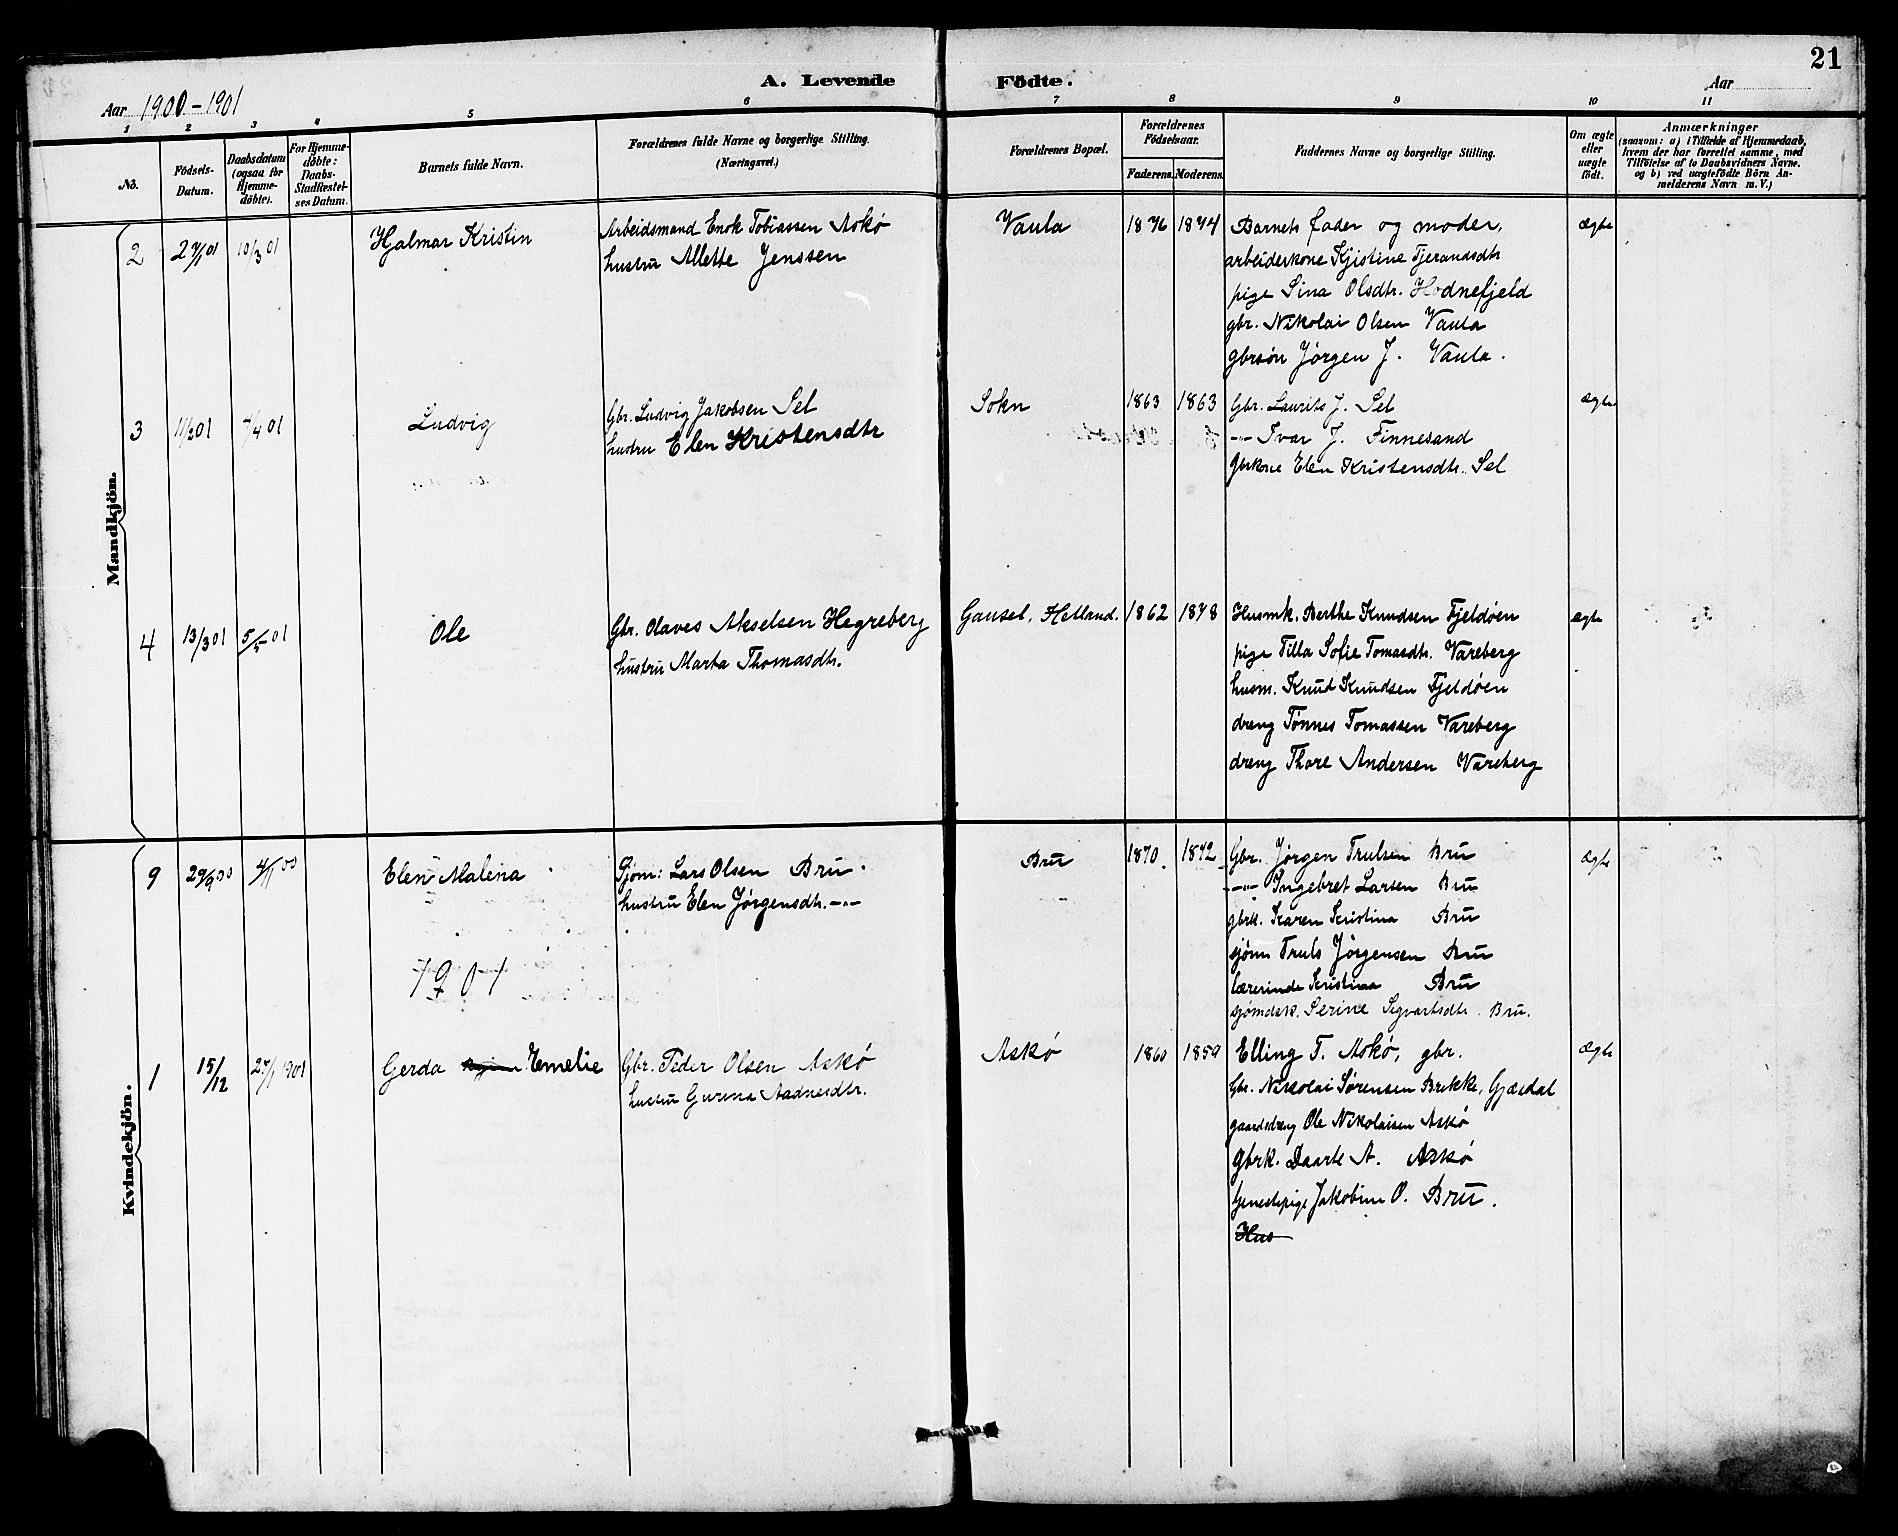 21
A. Levende Födte.
Aar 1900-1901
Aar
1 2 3 4 5 6 7 8 9 10 11
No.
Födsels-Datum.
Daabsdatum (ogsaa for Hjemme-döbte).
For Hjemme-döbte: Daabs-Stadfæstel-ses Datum.
Barnets fulde Navn.
Forældrenes fulde Navne og borgerlige Stilling. (Næringsvei.)
Forældrenes Bopæl.
Forældrenes Födselsaar.
Faderens. Moderens.
Faddernes Navne og borgerlige Stilling.
Om ægte eller uægte födt.
Anmærkninger
(saasom: a) i Tilfælde af Hjemmedaab,
hvem der har forrettet samme, med
Tilföielse af to Daabsvidners Navne,
og b) ved uægtefödte Börn An-
melderens Navn m. V.)
Mandkjön.
2 27/1 01 10/3 01 Halmar Kristin
Arbeidsmand Enok Tobiassen Askø
hustru Allette Jenssen
Vaula 1876 1874
Barnets fader og moder,
arbeiderkone Kjistine Tjerandsdtr
pige Sina Olsdtr. Hodnefjeld
gbr. Nikolai Olsen Vaula
gbrsøn Jørgen J. Vaula.
ægte
3 11/2 01 7/4 01 Ludvig
Gbr. Ludvig Jakobsen Sel
hustru Elen Kristensdtr
Sokn 1863 1863
Gbr. Laurits J. Sel
-"- Ivar J. Finnesand
Gbrkone Elen Kristensdtr. Sel
ægte
4 13/3 01 5/5 01 Ole
Gbr. Olaves Akselsen Hegreberg
hustru Marta Thomasdtr.
Gausel, Hetland. 1862 1878
Husmk. Berthe Knudsen Fjeldøen
pige Tilla Sofie Tomasdtr. Vareberg
husm. Knud Knudsen Fjeldøen
dreng Tønnes Tomassen Vareberg
dreng Thore Andersen Vareberg
ægte
Kvindekjön.
9 29/9 00 4/11 00 Elen Malena
Sjøm: Lars Olsen Bru.
hustru Elen Jørgensdtr. -"-
Bru 1870 1872
Gbr. Jørgen Trulsen Bru
-"- Ingebret Larsen Bru
gbrk. Karen Kristina Bru
sjøm Truls Jørgensen Bru
lærerinde Kristina Bru
sjømdsk. Serine Sigvartsdtr. Bru.
ægte
1901
1 15/12 27/1 1901 Gerda Emelie
Gbr. Peder Olsen Askø
hustru Gurina Aadnesdtr.
Askø 1860 1859
Elling T. Askø, gbr.
Gbr. Nikolai Sørensen Brekke, Gjæsdal
gaardsdreng Ole Nikolaisen Askø
gbrk. Daarte A. Askø
tjenestepige Jakobine O. Bru.
Hus
ægte